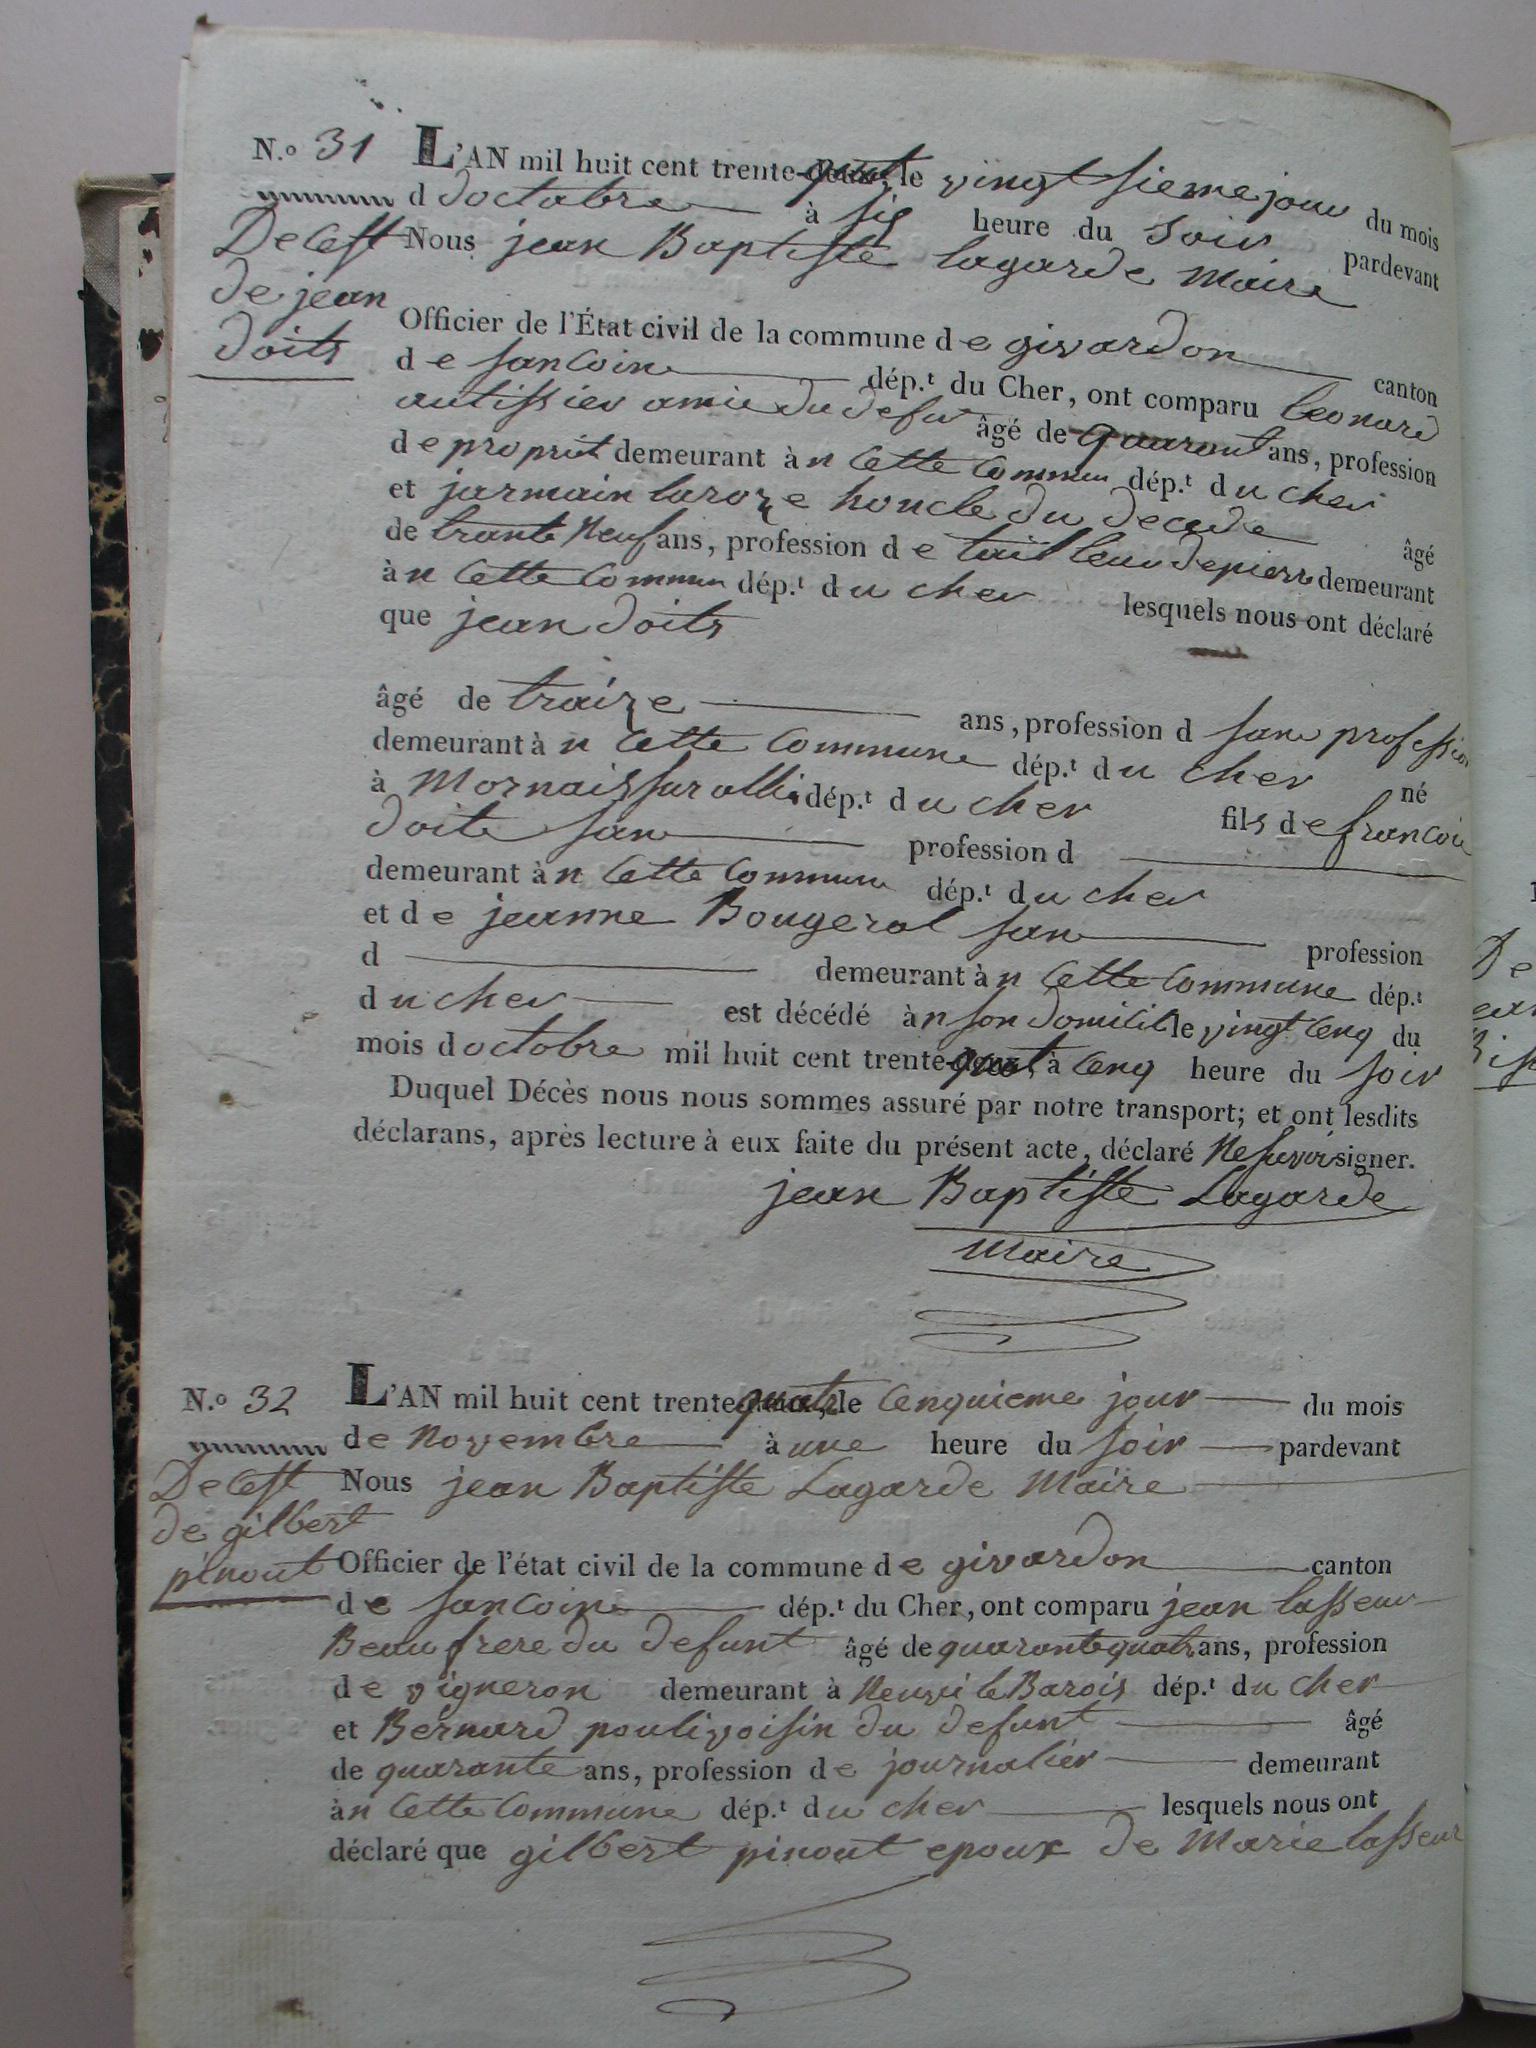 N.º 31 L'AN mil huit cent trente-quat, le vingt sieme jour du mois
d doctobre à sis heure du soir pardevant
Decest Nous jean Baptiste lagarde Maire
de jean
doits
Officier de l'État civil de la commune de givardon canton
de sancoin dép.t du Cher, ont comparu leonard
autissier amie du defu âgé de quarant ans, profession
de propriet demeurant àn cette commun dép.t du cher
et jarmain laroze honcle du decede âgé
de trante neuf ans, profession de tailleur depierre demeurant
àn cette commun dép.t du cher lesquels nous ont déclaré
que jean doits
âgé de traize ans, profession d san profession
demeurant àn cette commune dép.t du cher né
à Mornais sur allie dép.t du cher fils de francoie
doite san profession d
demeurant àn cette commune dép.t du cher
et de jeanne Bougerol san profession
d demeurant àn cette commune dép.t
du cher est décédé àn son domicil le vingt cenq du
mois doctobre mil huit cent trente-quat, à cenq heure du soir
Duquel Décès nous nous sommes assuré par notre transport; et ont lesdits
déclarans, après lecture à eux faite du présent acte, déclaré ne savoir signer.
jean Baptiste Lagarde
Maire
N.º 32 L'AN mil huit cent trente quatr, le cenquieme jour du mois
de novembre à une heure du soir pardevant
Decest Nous jean Baptiste Lagarde Maire
de gilbert
pinout Officier de l'état civil de la commune de givardon canton
de sancoin dép.t du Cher, ont comparu jean lasseur
Beau frere du defunt âgé de quarante quatr ans, profession
de vigneron demeurant à Neuvi le Barois dép.t du cher
et Bernard pouli voisin du defunt âgé
de quarante ans, profession de journalier demeurant
àn cette commune dép.t du cher lesquels nous ont
déclaré que gilbert pinout epoux de Marie lasseur